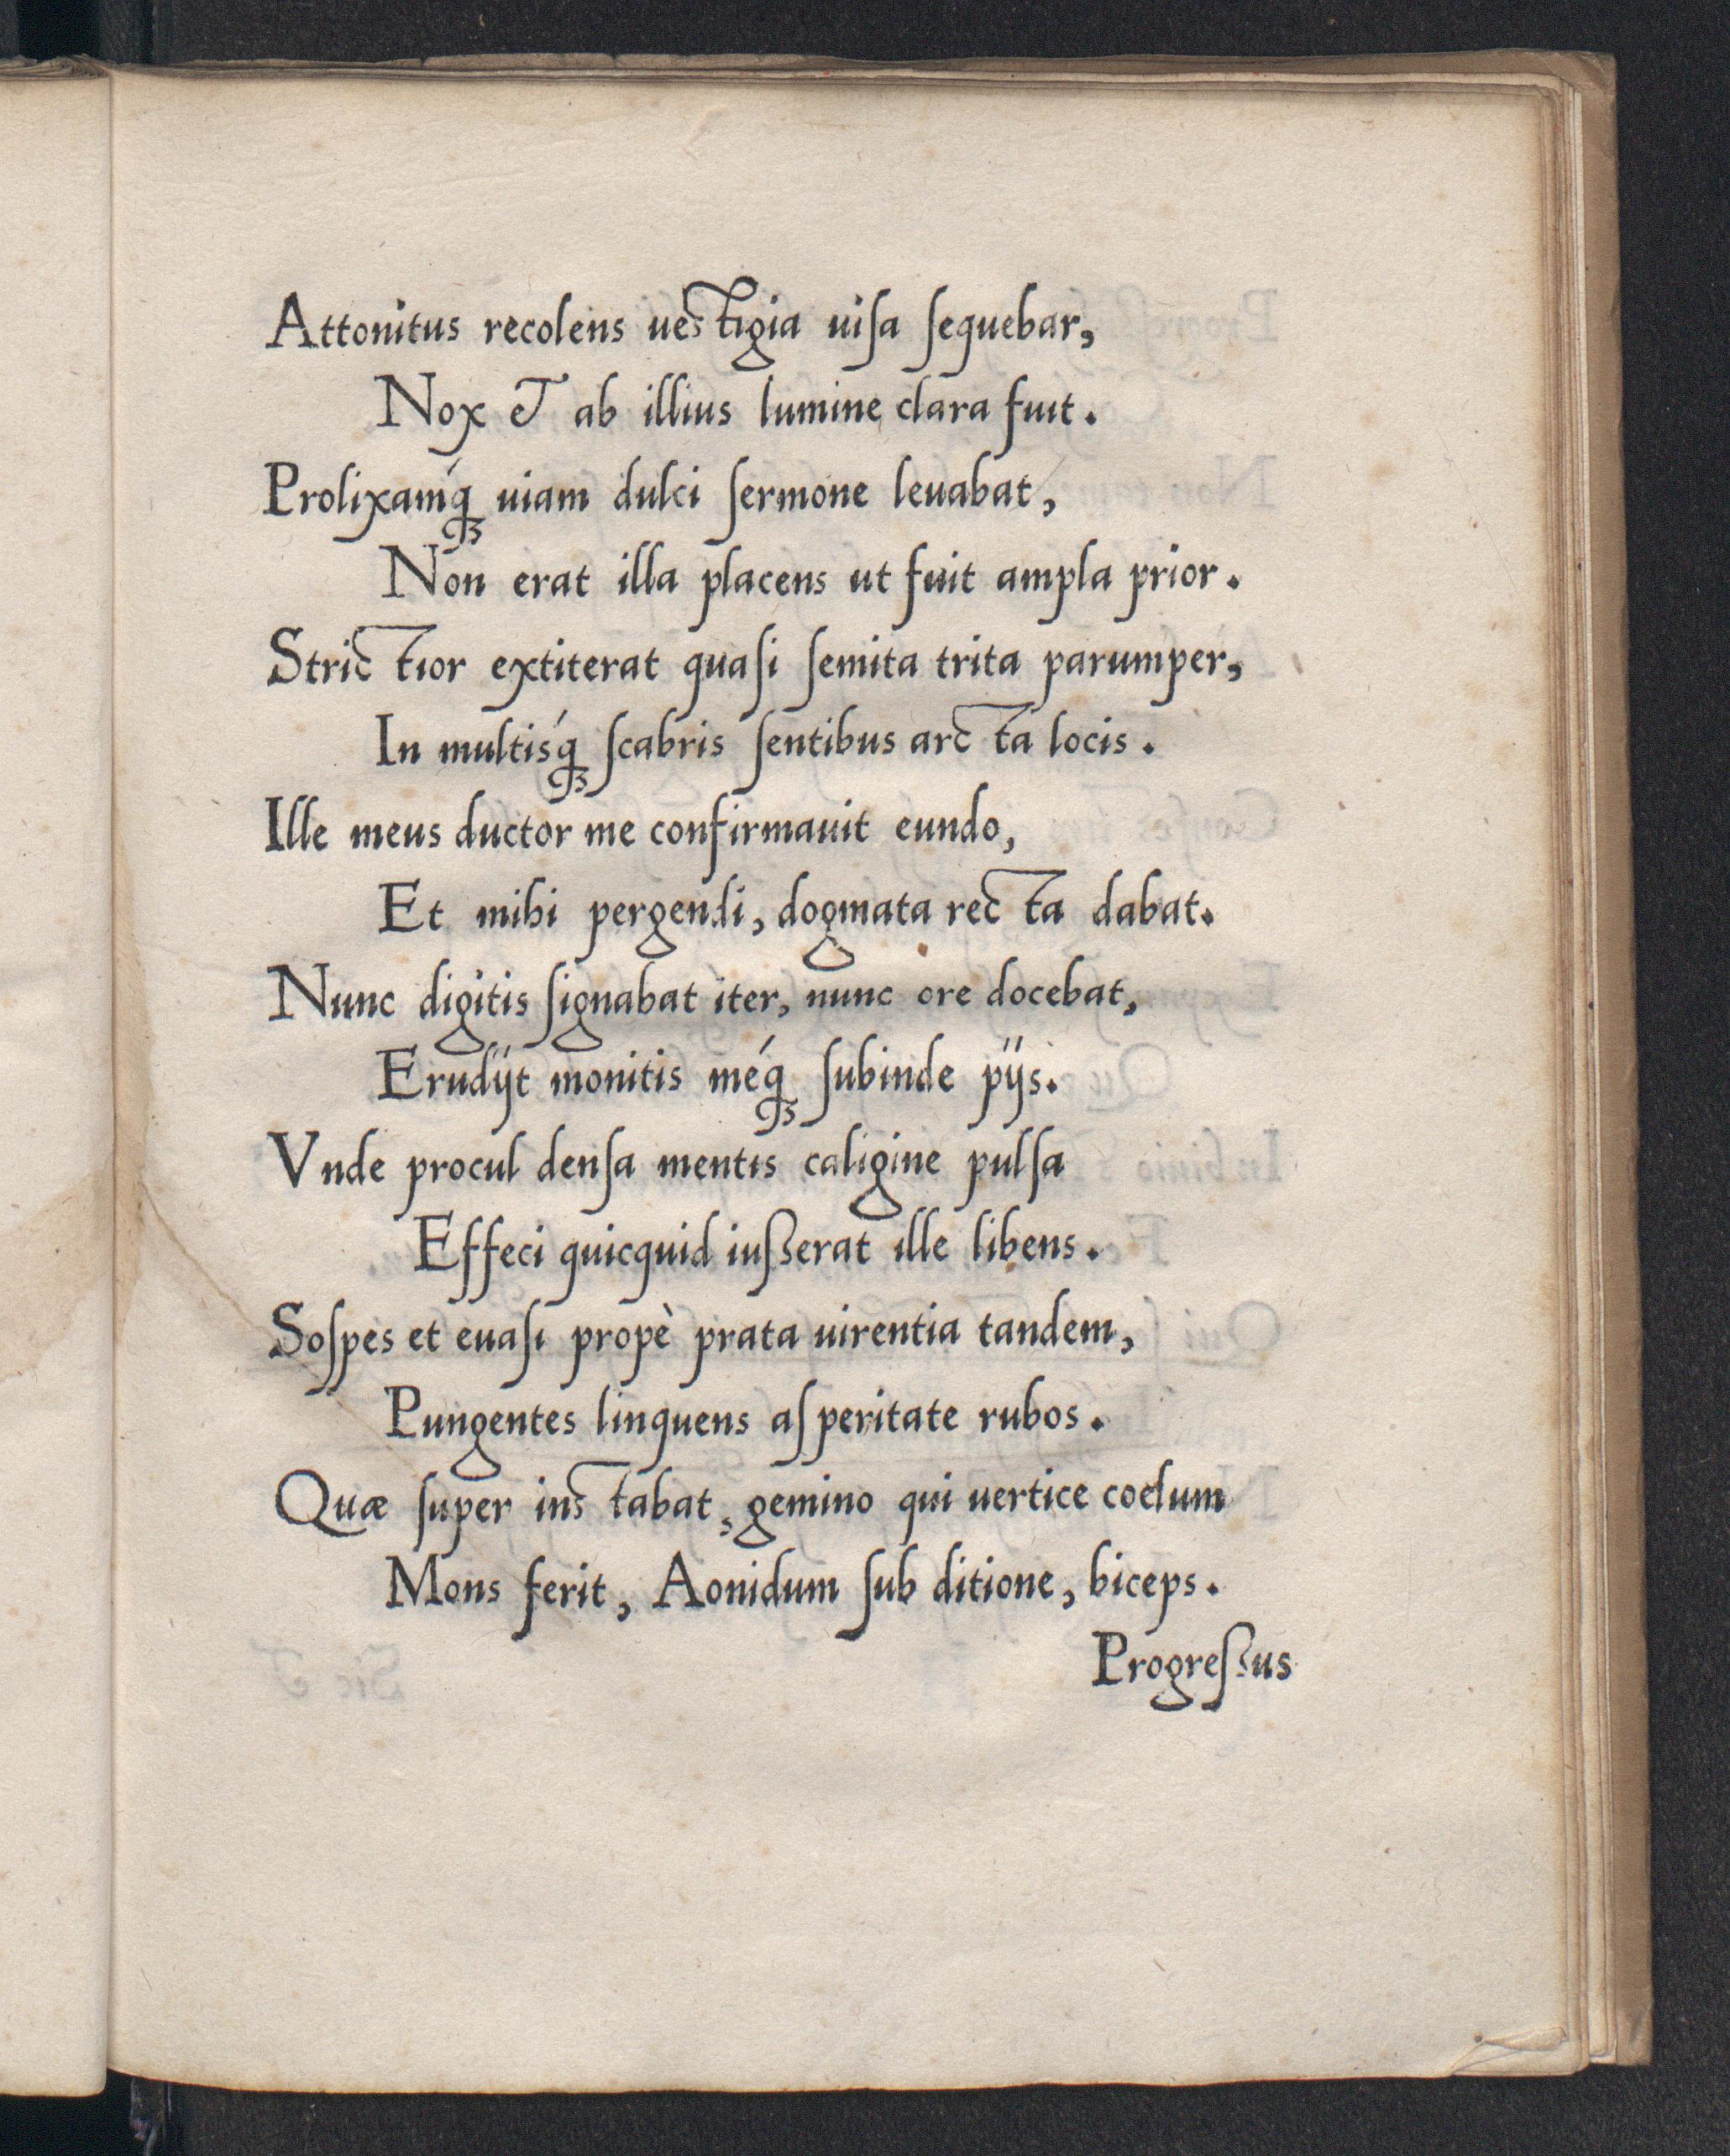 Attonitus recolens uestigia uiſa ſequebar,
Nox & ab illius lumine clara fuit.
Prolixamq́ꝫ uiam dulci ſermone leuabat,
Non erat illa placens ut fuit ampla prior.
Strictior extiterat quaſi ſemita trita parumper,
In multisq́ꝫ ſcabris ſentibus arcta locis.
Ille meus ductor me confirmauit eundo,
Et mihi pergendi, dogmata recta dabat.
Nunc digitis ſignabat iter, nunc ore docebat,
Erudijt monitis méqꝫ ſubinde pijs.
Vnde procul denſa mentis caligine pulſa
Effeci quicquid iuſſerat ille libens.
Soſpes et euaſi propè prata uirentia tandem,
Pungentes linquens aſperitate rubos.
Quæ ſuper instabat, gemino qui uertice coelum
Mons ferit, Aonidum ſub ditione, biceps.
Progreſſus